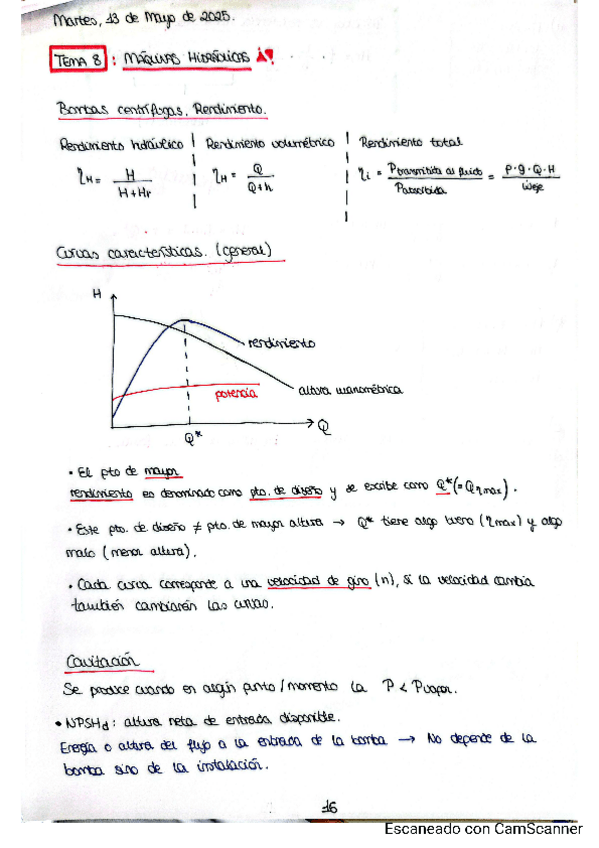 Martes, 13 de Mayo de 2025.
TEMA 8 : MÁQUINAS HIDRÁULICAS
Bombas centrífugas. Rendimiento.
Rendimiento hidráulico | Rendimiento volumétrico | Rendimiento total
ηH = H / H+Hr | ηH = Q / Q+h | ηi = Ptransmitida al fluido / Pabsorbida = ρ·g·Q·H / Ẇeje
Curvas características. (general)
H
rendimiento
altura manométrica
potencia
Q
Q*
• El pto de mayor
rendimiento es denominado como pto. de diseño y se escribe como Q*(=Qηmax).
• Este pto. de diseño ≠ pto. de mayor altura → Q* tiene algo bueno (ηmax) y algo
malo (menor altura).
• Cada curva corresponde a una velocidad de giro (n), si la velocidad cambia
también cambiarán las curvas.
Cavitación
Se produce cuando en algún punto/momento la P < Pvapor.
• NPSHd : altura neta de entrada disponible.
Energía o altura del flujo a la entrada de la bomba → No depende de la
bomba sino de la instalación.
16
Escaneado con CamScanner